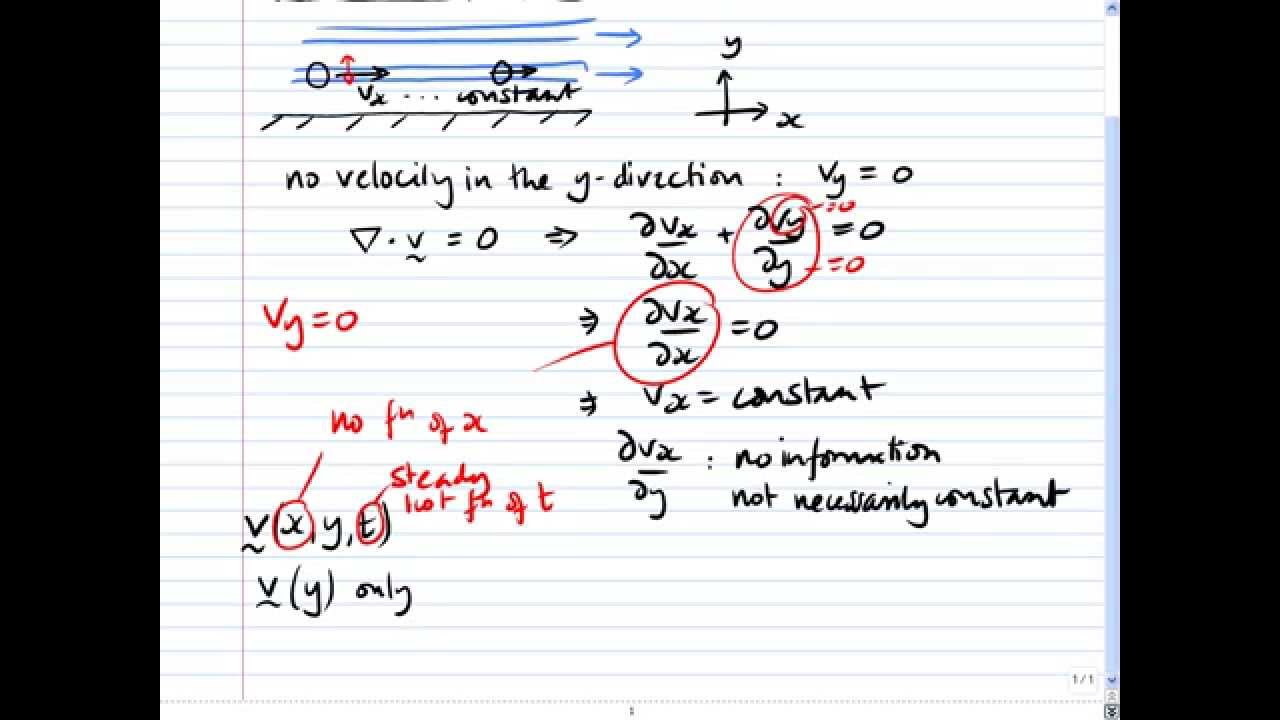 y
vx ... constant
x
no velocity in the y-direction : vy = 0
∇ · v = 0 ⇒ ∂vx/∂x + ∂vy/∂y = 0
=0
=0
vy = 0
⇒ ∂vx/∂x = 0
⇒ vx = constant
no fn of x
∂vx/∂y : no information
not necessarily constant
steady
not fn of t
v(x, y, t)
v(y) only
1/1
1